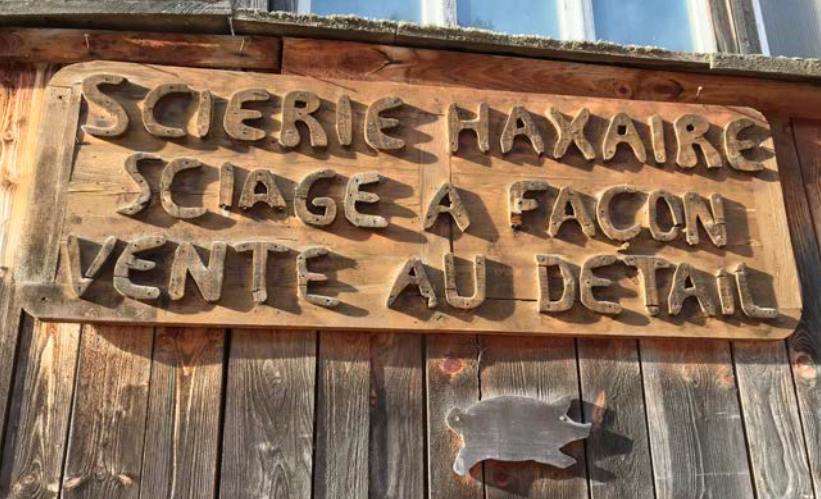 SCIERIE HAXAIRE
SCIAGE A FACON
VENTE AU DETAIL